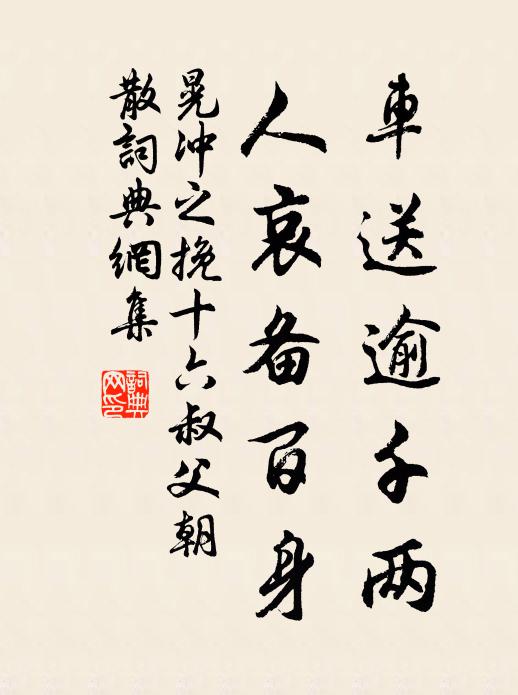 車送逾千两
人哀备百身
晁冲之挽十六叔父朝
散詞典網集
詞典
网印